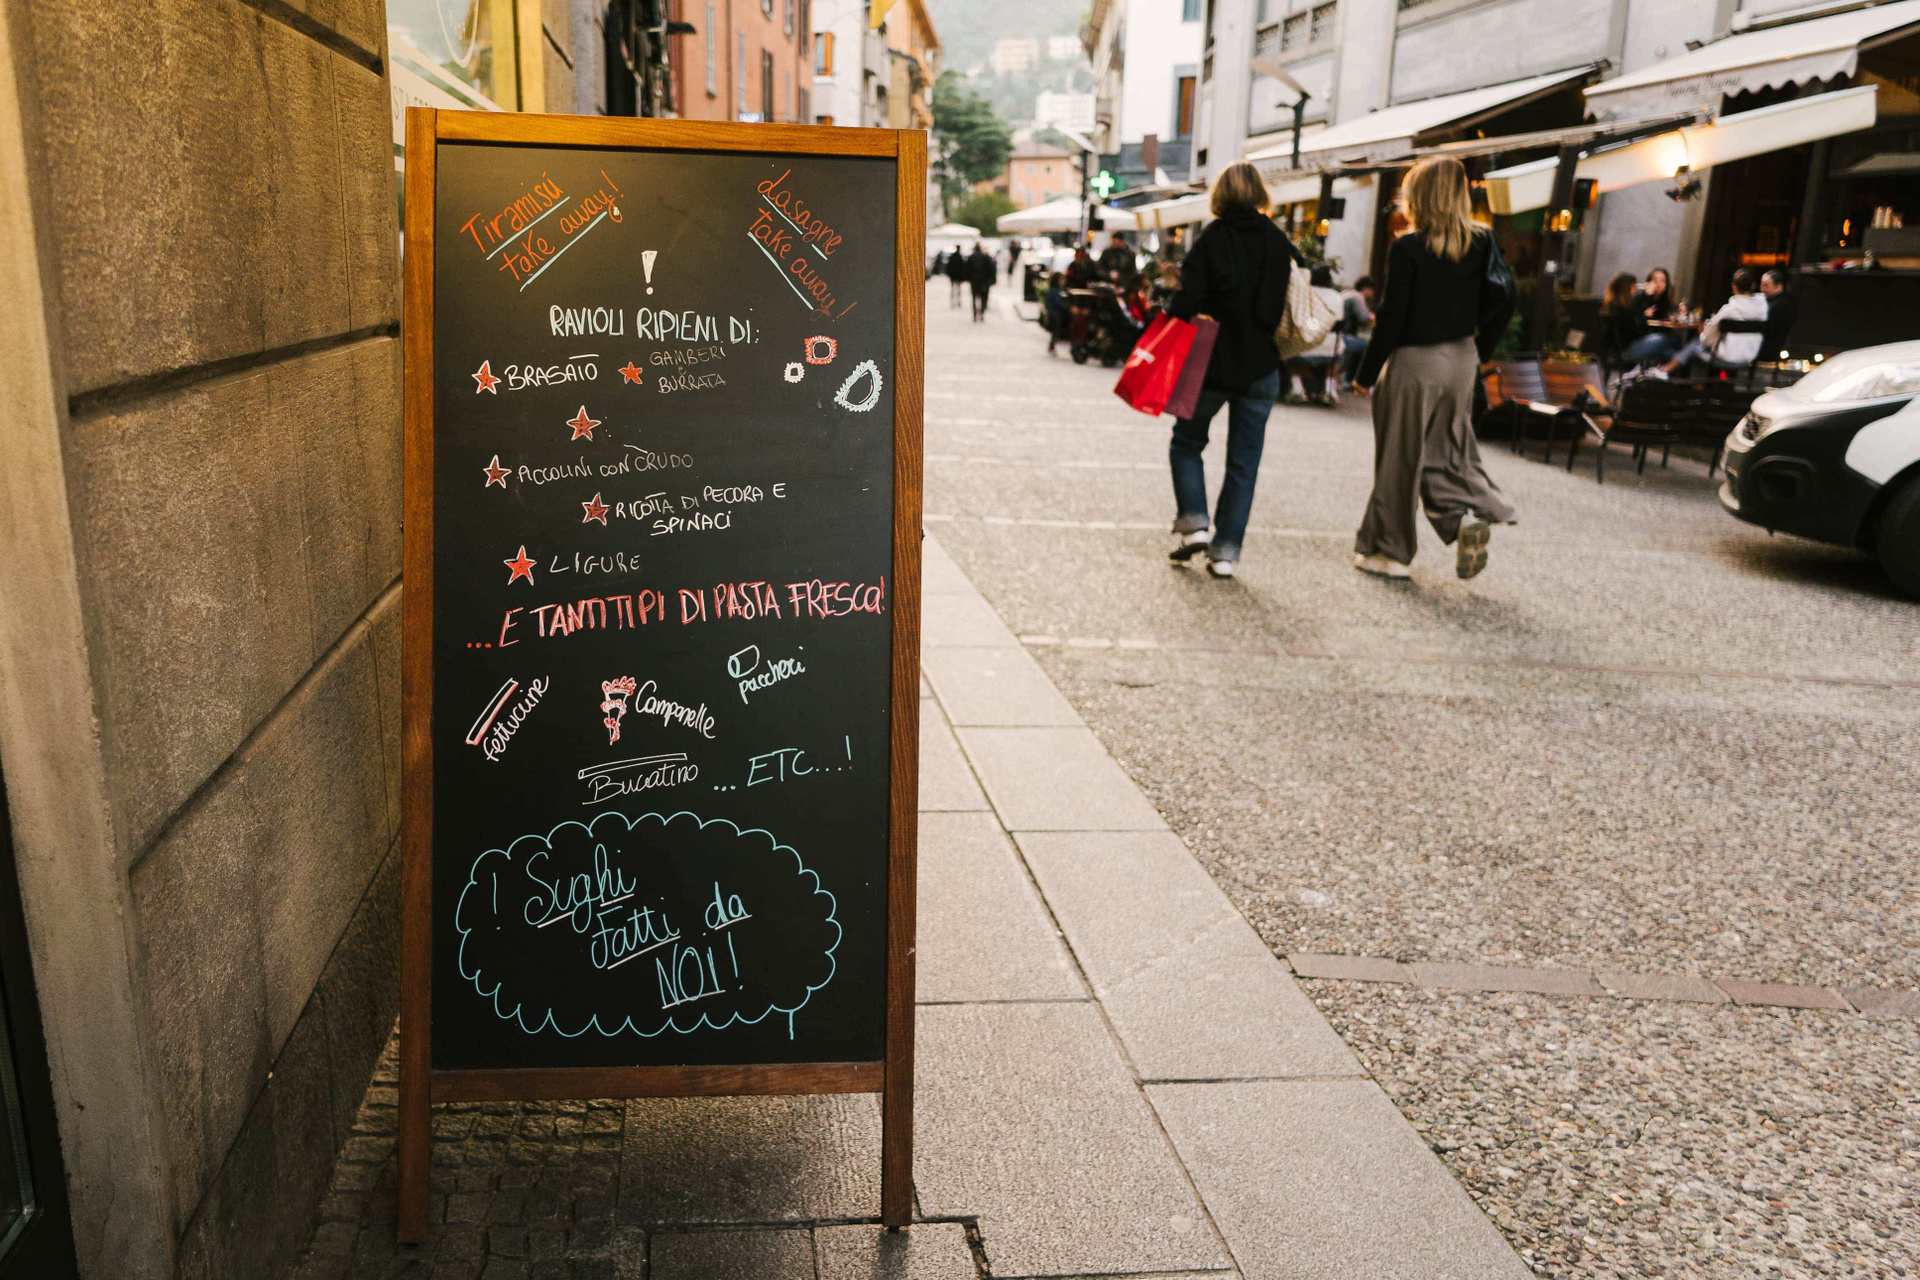 Tiramisú
take away!
Lasagne
take away!
!
RAVIOLI RIPIENI DI:
BRASATO
GAMBERI
E
BURRATA
PICCOLINI CON CRUDO
RICOTTA DI PECORA E
SPINACI
LIGURE
...E TANTI TIPI DI PASTA FRESCA!
fettuccine
Campanelle
paccheri
Bucatino
... ETC...!
! Sughi
Fatti da
NOI!